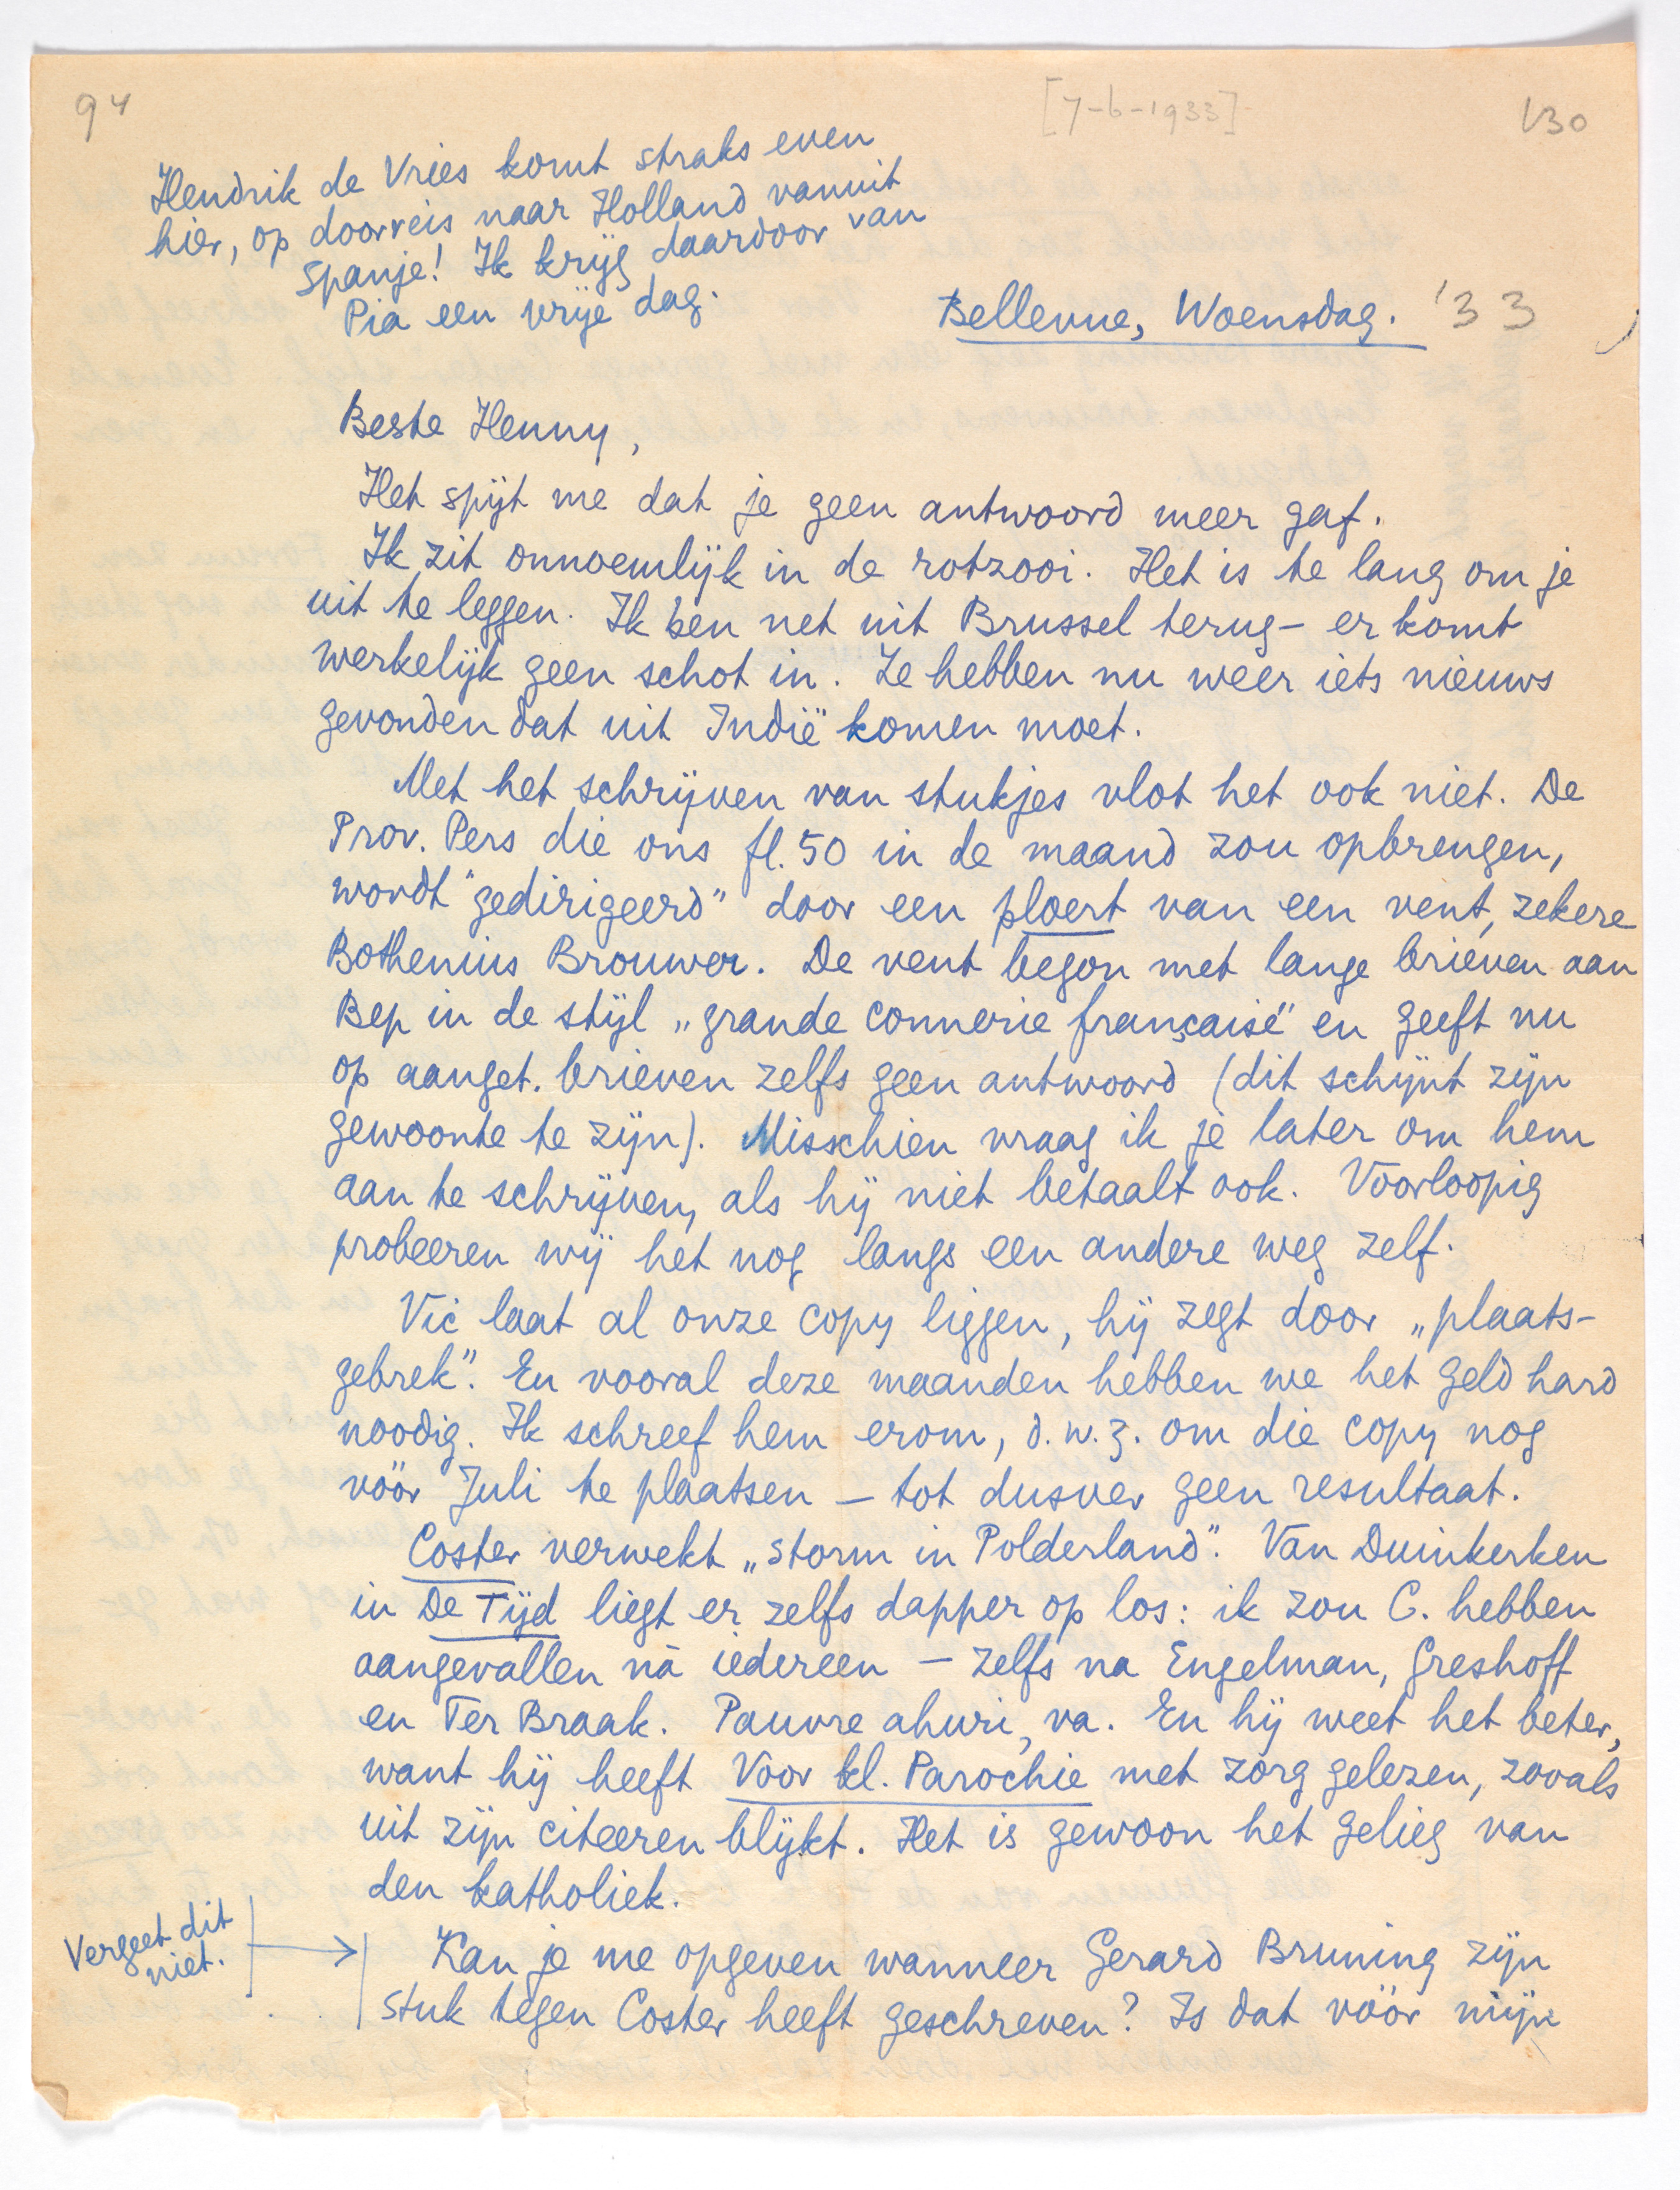 94
[7-6-1933]
130
Hendrik de Vries komt straks even
hier, op doorreis naar Holland vanuit
Spanje! Ik krijg daardoor van
Pia een vrije dag.
Bellevue, Woensdag. '33
Beste Henny,
Het spijt me dat je geen antwoord meer gaf.
Ik zit onnoemlijk in de rotzooi. Het is te lang om je
uit te leggen. Ik ben net uit Brussel terug – er komt
werkelijk geen schot in. Ze hebben nu weer iets nieuws
gevonden dat uit Indië komen moet.
Met het schrijven van stukjes vlot het ook niet. De
Prov. Pers die ons fl. 50 in de maand zou opbrengen,
wordt "gedirigeerd" door een ploert van een vent, zekere
Bothenius Brouwer. De vent begon met lange brieven aan
Bep in de stijl „grande connerie française" en geeft nu
op aanget. brieven zelfs geen antwoord (dit schijnt zijn
gewoonte te zijn). Misschien vraag ik je later om hem
aan te schrijven, als hij niet betaalt ook. Voorloopig
probeeren wij het nog langs een andere weg zelf.
Vic laat al onze copy liggen, hij zegt door „plaats-
gebrek". En vooral deze maanden hebben we het geld hard
noodig. Ik schreef hem erom, d.w.z. om die copy nog
vóór Juli te plaatsen – tot dusver geen resultaat.
Coster verwekt „storm in Polderland". Van Duinkerken
in De Tijd liegt er zelfs dapper op los: ik zou C. hebben
aangevallen ná iedereen – zelfs na Engelman, Greshoff
en Ter Braak. Pauvre ahuri, va. En hij weet het beter,
want hij heeft Voor kl. Parochie met zorg gelezen, zooals
uit zijn citeeren blijkt. Het is gewoon het gelieg van
den katholiek.
Vergeet dit
niet.
Kan je me opgeven wanneer Gerard Bruning zijn
stuk tegen Coster heeft geschreven? Is dat vóór mijn